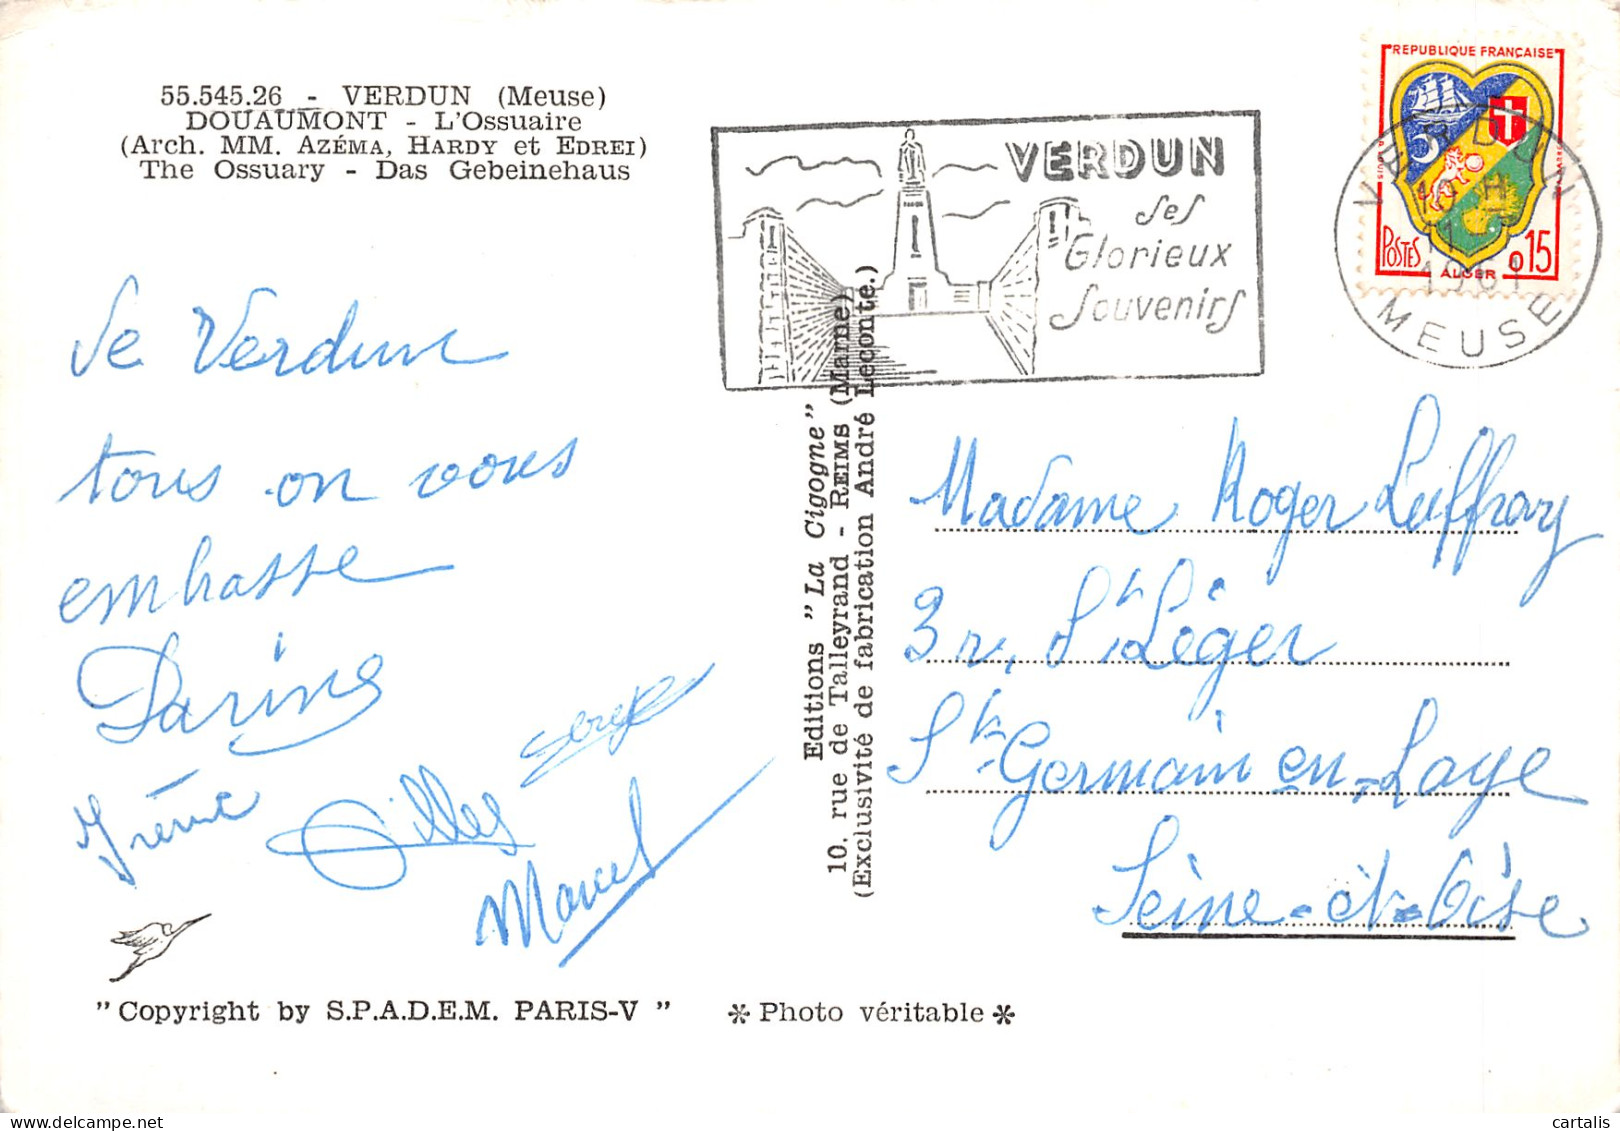 55.545.26 - VERDUN (Meuse)
DOUAUMONT - L'Ossuaire
(Arch. MM. AZÉMA, HARDY et EDREI)
The Ossuary - Das Gebeinehaus
VERDUN
Ses
Glorieux
Souvenirs
REPUBLIQUE FRANÇAISE
POSTES
ALGER
0,15
VERDUN
1961
MEUSE
De Verdun
tous on vous
embrasse
Irène
Gilles
Serge
Marcel
Editions "La Cigogne"
10. rue de Talleyrand - REIMS (Marne)
(Exclusivité de fabrication André Leconte.)
Madame Roger
3 r, St Léger
St Germain en-Laye
Seine-et-Oise
"Copyright by S.P.A.D.E.M. PARIS-V"
* Photo véritable *
cartalis
www.delcampe.net